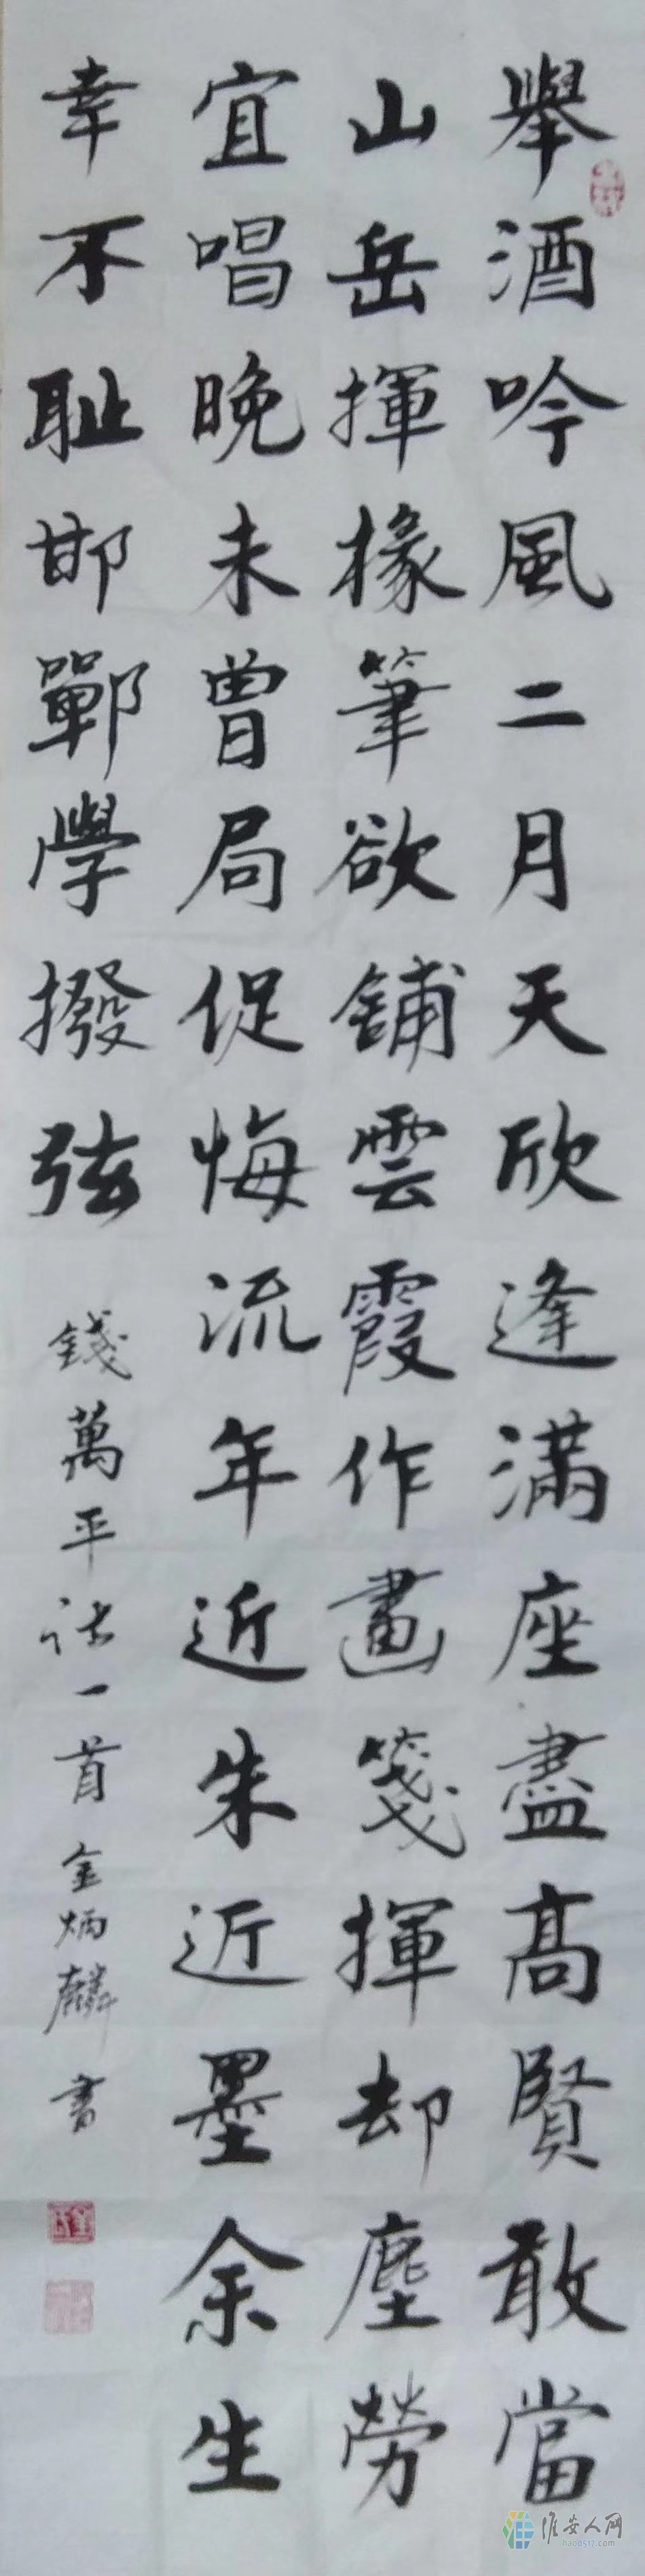 舉酒吟風二月天欣逢滿座盡高賢敢當
山岳揮椽筆欲鋪雲霞作畫箋揮却塵勞
宜唱晚未曾局促悔流年近朱近墨余生
幸不耻邯鄲學撥弦
錢萬平詩一首金炳麟書
淮安人网